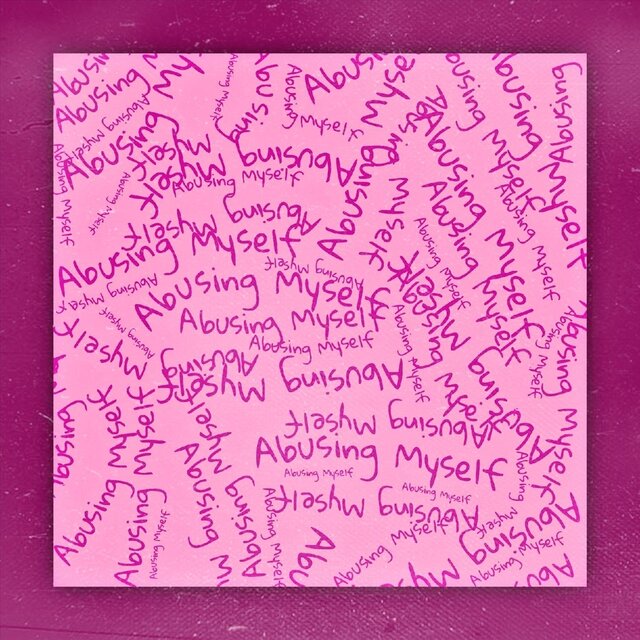 Abusing Myself
Abusing Myself
Abusing Myself
Abusing Myself
Abusing Myself
Abusing Myself
Abusing Myself
Abusing Myself
Abusing Myself
Abusing Myself
Abusing Myself
Abusing Myself
Abusing Myself
Abusing Myself
Abusing Myself
Abusing Myself
Abusing Myself
Abusing Myself
Abusing Myself
Abusing Myself
Abusing Myself
Abusing Myself
Abusing Myself
Abusing Myself
Abusing Myself
Abusing Myself
Abusing Myself
Abusing Myself
Abusing Myself
Abusing Myself
Abusing Myself
Abusing Myself
Abusing Myself
Abusing Myself
Abusing Myself
Abusing Myself
Abusing Myself
Abusing Myself
Abusing Myself
Abusing Myself